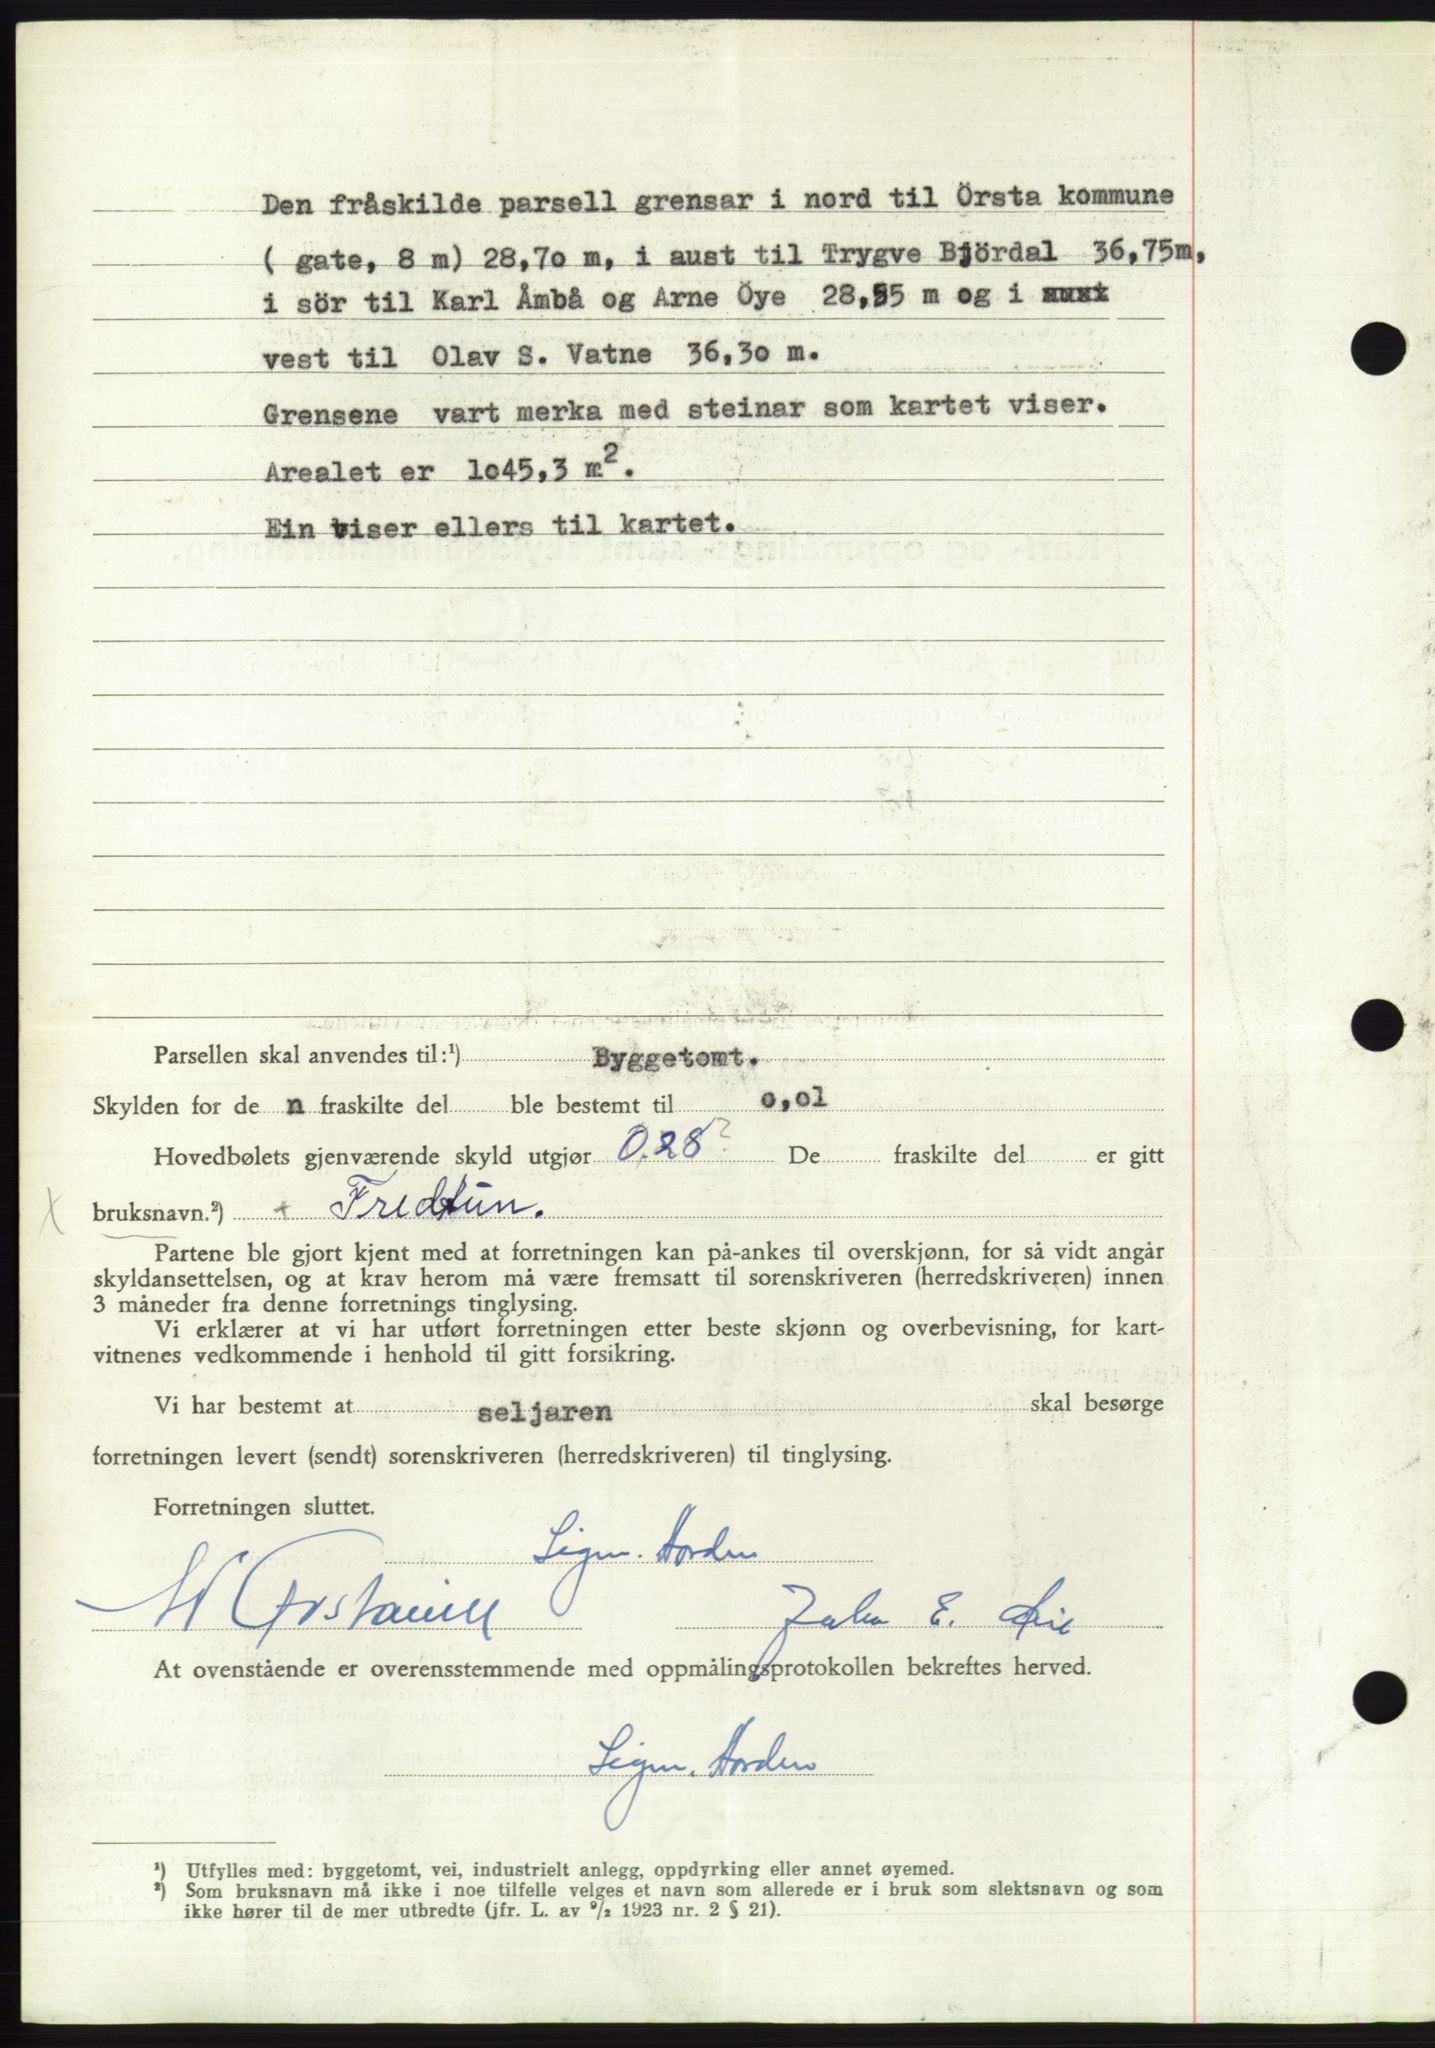 Den fråskilde parsell grensar i nord til Örsta kommune
( gate, 8 m) 28,7o m, i aust til Trygve Björdal 36,75m,
i sör til Karl Åmbå og Arne Öye 28,55 m og i
vest til Olav S. Vatne 36,3o m.
Grensene vart merka med steinar som kartet viser.
Arealet er lo45,3 m².
Ein viser ellers til kartet.
Parsellen skal anvendes til:¹) Byggetomt.
Skylden for de n fraskilte del ble bestemt til o,ol
Hovedbølets gjenværende skyld utgjør 0.28 ? De fraskilte del er gitt
x bruksnavn.²) + Fredtun.
Partene ble gjort kjent med at forretningen kan på-ankes til overskjønn, for så vidt angår
skyldansettelsen, og at krav herom må være fremsatt til sorenskriveren (herredskriveren) innen
3 måneder fra denne forretnings tinglysing.
Vi erklærer at vi har utført forretningen etter beste skjønn og overbevisning, for kart-
vitnenes vedkommende i henhold til gitt forsikring.
Vi har bestemt at seljaren skal besørge
forretningen levert (sendt) sorenskriveren (herredskriveren) til tinglysing.
Forretningen sluttet.
Sigm. Hovden
John E.
At ovenstående er overensstemmende med oppmålingsprotokollen bekreftes herved.
Sigm. Hovden
¹) Utfylles med: byggetomt, vei, industrielt anlegg, oppdyrking eller annet øyemed.
²) Som bruksnavn må ikke i noe tilfelle velges et navn som allerede er i bruk som slektsnavn og som
ikke hører til de mer utbredte (jfr. L. av ⁹/₂ 1923 nr. 2 § 21).